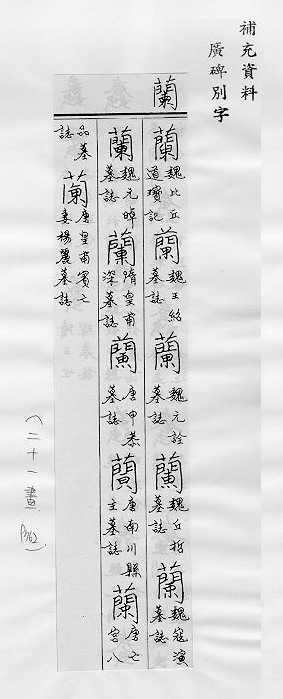 補充資料
廣碑別字
蘭
蘭魏比丘道瓊記蘭魏王紹墓誌蘭魏元詮墓誌蘭魏丘哲墓誌蘭魏寇演墓誌
蘭魏元暐墓誌蘭隋皇甫深墓誌蘭唐甲恭墓誌蘭唐南川縣主墓誌蘭唐亡宮八
品墓誌蘭唐皇甫賓亡妻楊麗墓誌
(二十一畫
P762)